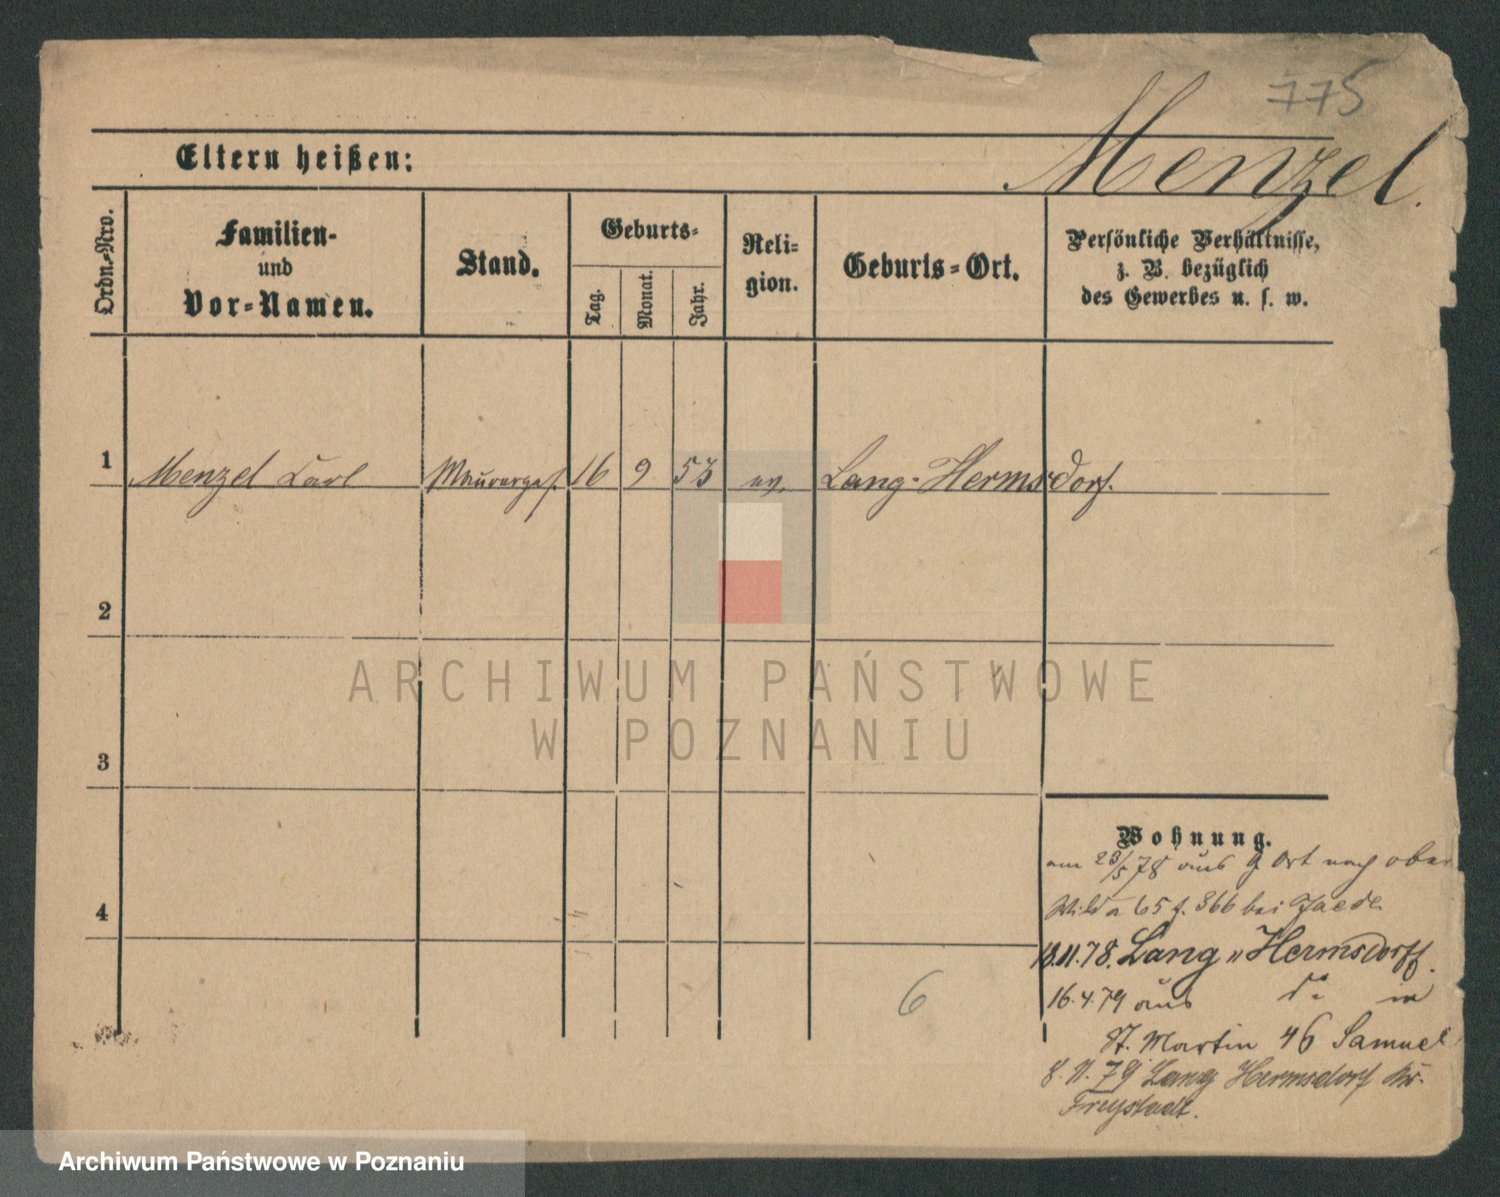 775
Menzel.
Eltern heißen:
Ordn.-Nro.
Familien-
und
Vor-Namen.
Stand.
Geburts-
Tag.
Monat.
Jahr.
Reli-
gion.
Geburts-Ort.
Persönliche Verhältnisse,
z. B. bezüglich
des Gewerbes u. s. w.
1 Menzel Carl Maurerges. 16 9 53 ev. Lang-Hermsdorf.
2
ARCHIWUM PAŃSTWOWE
W POZNANIU
3
4
Wohnung.
am 23/5 78 aus Ort nach ober
Wilda 65 f. 366 bei Jaede.
18.11.78. Lang-Hermsdorff.
16.4.79 aus do in
St. Martin 46 Samuel
8.11.79 Lang Hermsdorf Kr.
Freystadt.
6
Archiwum Państwowe w Poznaniu